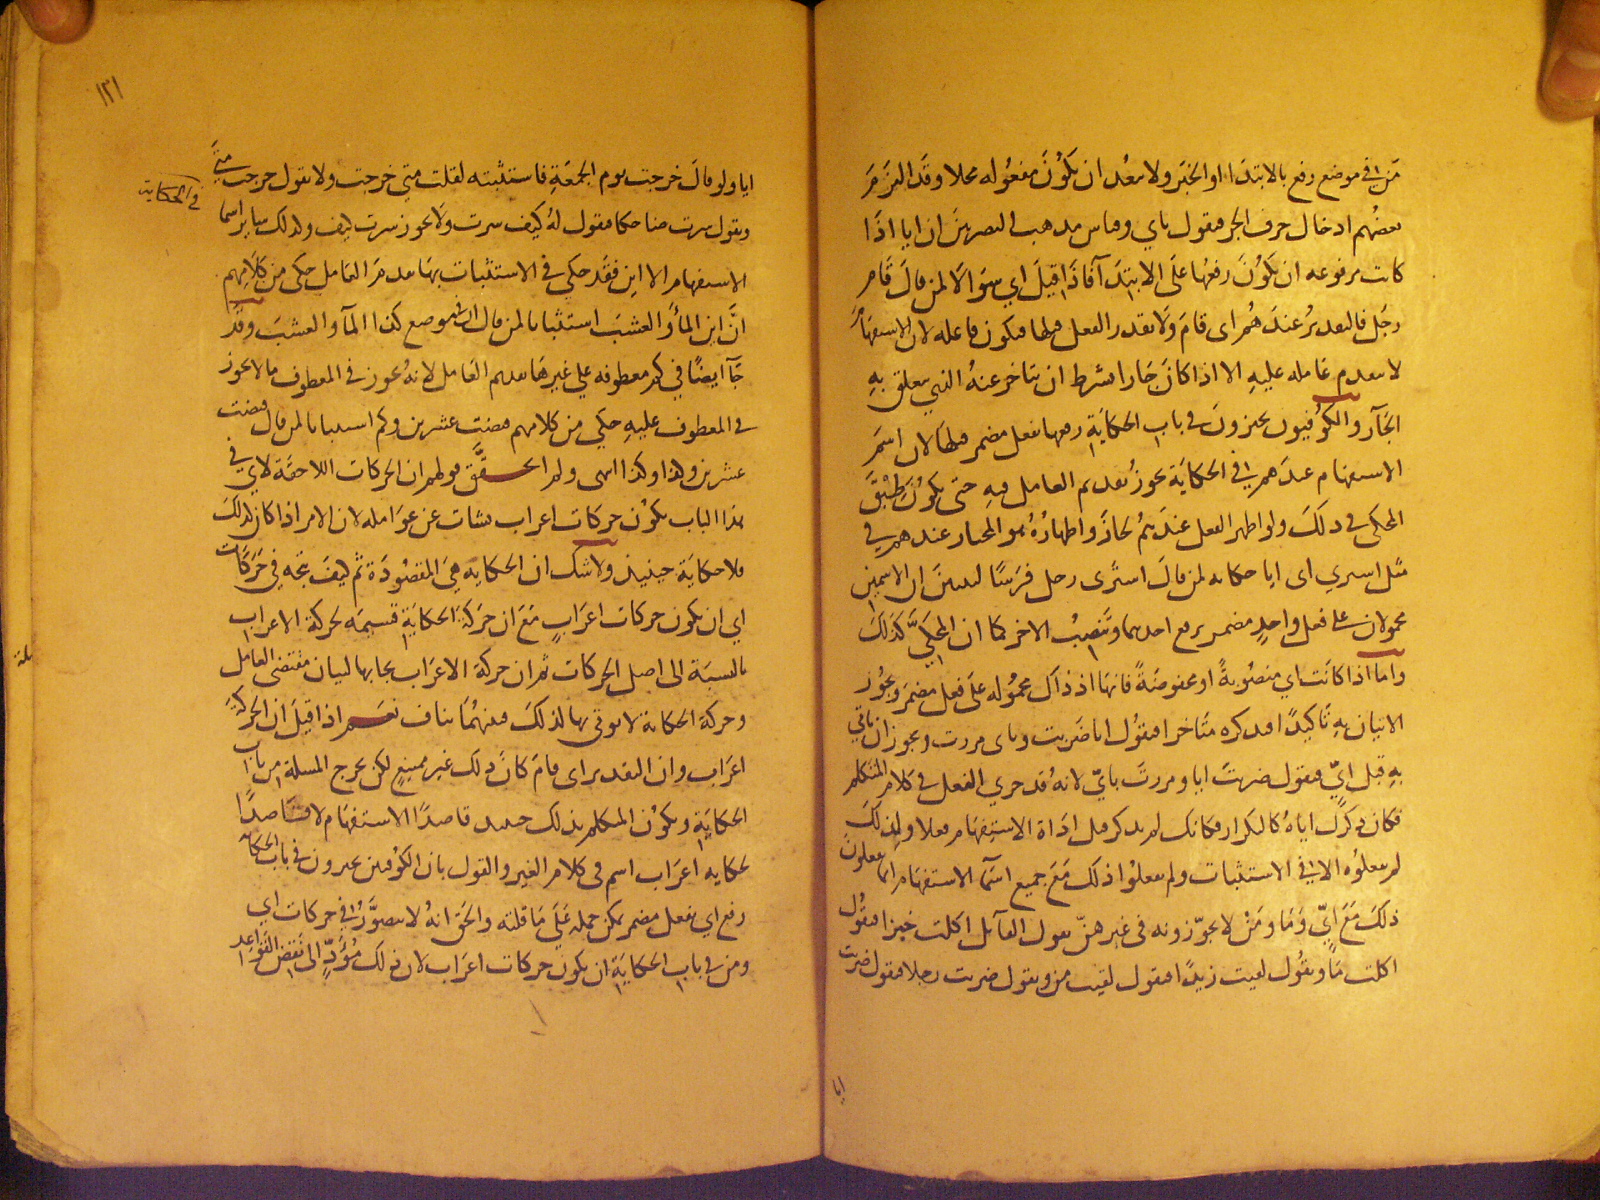 مَن في موضع رفع بالابتداء او الخبر ولا بعد ان يكون مفعوله محلا وقد التزم
بعضهم ادخال حرف الجر فيقول باي ومن مذهب البصريين ان ايا اذا
كانت مرفوعه ان يكون رفعها على الابتداء فاذا قيل اي سؤالا لمن قال قام
رجل فالتقدير عندهم اي قام ولا يقدر الفعل قبلها فيكون فاعله لان الاستفهام
لا يتقدم عامله عليه الا اذا كان جارا بشرط ان يتاخر عنه الذي يتعلق به
الجار والكوفيون يجيزون في باب الحكاية رفعها بفعل مضمر قبلها لان اسم
الاستفهام عندهم في الحكاية يجوز تقديم العامل فيه حتى يكون يطبق
المحكي في ذلك ولو اظهر الفعل عندهم لجاز واظهاره هو المختار عندهم في
مثل اشترى اي ايا حكاية لمن قال اشترى رجل فرسا ليبين ان الاسمين
محمولان على فعل واحد مضمر يرفع احدهما وينصب الاخر كما ان المحكي كذلك
واما اذا كانت اي منصوبة او مخفوضة فانها اذ ذاك محموله على فعل مضمر ويجوز
الاتيان به تاكيدا فيذكره متاخرا فيقول ايا ضربت وباي مررت ويجوز ان ياتي
به قبل اي فيقول ضربت ايا ومررت باي لانه قد جرى الفعل في كلام المتكلم
فكان ذكرك اياه كالتكرار فكانك لم يذكر قبل اداة الاستفهام فعلا ولذلك
لم يفعلوه الا في الاستثبات ولم يفعلوا ذلك مع جميع اسماء الاستفهام انما يفعلون
ذلك مع اي وما ومن لا يجوزونه في غيرهن يقول القائل اكلت خبزا فيقول
اكلت ما ويقول لقيت زيدا فيقول لقيت من ويقول ضربت رجلا فيقول ضربت
ايا
١٢١
في الحكاية
ايا ولو قال خرجت يوم الجمعة فاستثبته لقلت متى خرجت ولا يقول خرجت متى
ويقول سرت ضاحكا فيقول له كيف سرت ولا يجوز سرت كيف وكذلك سائر اسما
الاستفهام الا اين فقد حكي في الاستثبات بها تقدم العامل حكي من كلامهم
ان اين الماء والعشب استثباتا لمن قال ان في موضع كذا الماء والعشب وقد
جاء ايضا في كم معطوفه على غيرها تقديم العامل لانه يجوز في المعطوف ما لا يجوز
في المعطوف عليه حكي من كلامهم قبضت عشرين وكم استثباتا لمن قال قبضت
عشرين وكذا وكذا انتهى ولم اتحقق قولهم ان الحركات اللاحقة لاي في
هذا الباب يكون حركات اعراب نشات عن عوامله لان الامر اذا كان كذلك
فلا حكاية حينئذ ولا شك ان الحكاية هي المقصودة ثم كيف يتجه في حركات
اي ان يكون حركات اعراب مع ان حركة الحكاية قسيمة لحركة الاعراب
بالنسبة الى اصل الحركات ثم ان حركة الاعراب يجاء بها لبيان مقتضى العامل
وحركة الحكاية لا يوتى بها لذلك فبينهما تناف نعم اذا قيل ان الحركة
اعراب وان التقدير اي قام كان ذلك غير ممتنع لكن يخرج المسلة من باب
الحكاية ويكون المتكلم بذلك حينئذ قاصدا الاستفهام لا قاصدا
لحكاية اعراب اسم في كلام الغير والقول بان الكوفيين يجيزون في باب الحكاية
رفع اي بفعل مضمر يمكن حمله على ما قلته والحق انه لا يتصور في حركات اي
ومن في باب الحكاية ان يكون حركات اعراب لان ذلك مؤد الى نقض القواعد